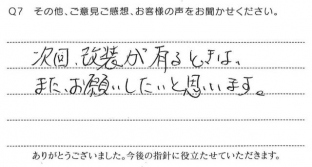 Q7 その他、ご意見ご感想、お客様の声をお聞かせください。
次回、改装が有るときは、
また、お願いしたいと思います。
ありがとうございました。今後の指針に役立たせていただきます。